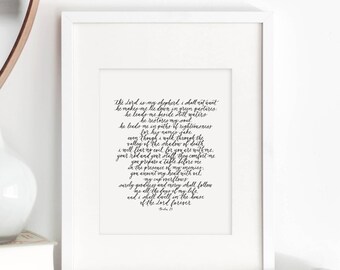 the Lord is my shepherd, i shall not want
he makes me lie down in green pastures.
he leads me beside still waters.
he restores my soul.
he leads me in paths of righteousness
for his name's sake.
even though i walk through the
valley of the shadow of death,
i will fear no evil, for you are with me,
your rod and your staff, they comfort me
you prepare a table before me
in the presence of my enemies,
you anoint my head with oil,
my cup overflows.
surely goodness and mercy shall follow
me all the days of my life,
and i shall dwell in the house
of the Lord forever
Psalm 23